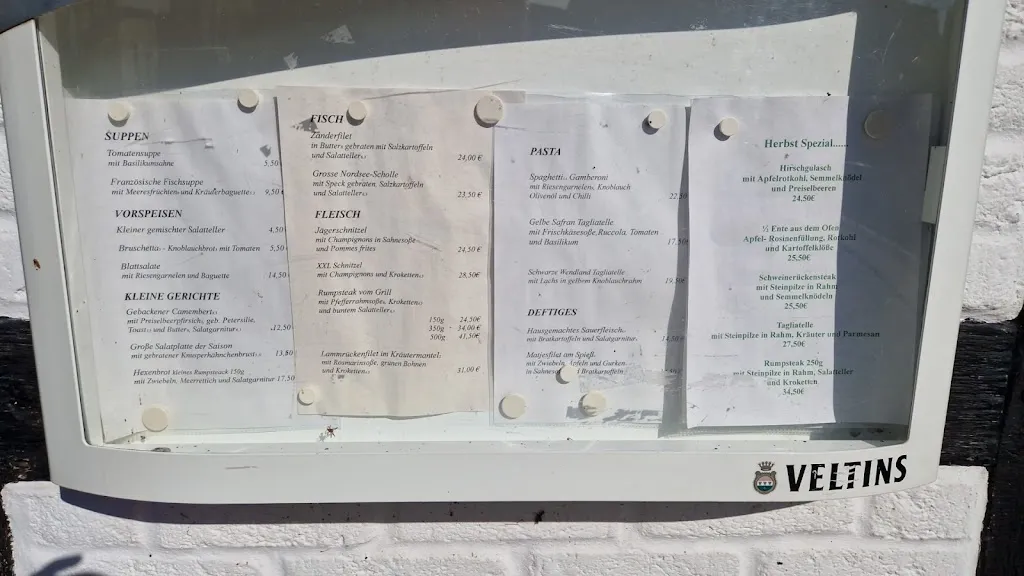 SUPPEN
Tomatensuppe
mit Basilikumsahne 5,50
Französische Fischsuppe
mit Meeresfrüchten und Kräuterbaguette 9,50
VORSPEISEN
Kleiner gemischter Salatteller 4,50
Bruschetta - Knoblauchbrot mit Tomaten 5,50
Blattsalate
mit Riesengarnelen und Baguette 14,50
KLEINE GERICHTE
Gebackener Camembert
mit Preiselbeerpfirsich, geb. Petersilie,
Toast und Butter, Salatgarnitur 12,50
Große Salatplatte der Saison
mit gebratener Knusperhähnchenbrust 13,80
Hexenbrot kleines Rumpsteak 150g
mit Zwiebeln, Meerrettich und Salatgarnitur 17,50
FISCH
Zanderfilet
in Butter gebraten mit Salzkartoffeln
und Salatteller 24,00 €
Grosse Nordsee-Scholle
mit Speck gebraten, Salzkartoffeln
und Salatteller 23,50 €
FLEISCH
Jägerschnitzel
mit Champignons in Sahnesoße
und Pommes frites 24,50 €
XXL Schnitzel
mit Champignons und Kroketten 28,50€
Rumpsteak vom Grill
mit Pfefferrahmsoße, Kroketten
und buntem Salatteller
150g 24,50€
350g 34,00 €
500g 41,50€
Lammrückenfilet im Kräutermantel
mit Rosmarinsoße, grünen Bohnen
und Kroketten 31,00 €
PASTA
Spaghetti Gamberoni
mit Riesengarnelen, Knoblauch
Olivenöl und Chilli 22,50
Gelbe Safran Tagliatelle
mit Frischkäsesoße, Ruccola, Tomaten
und Basilikum 17,50
Schwarze Wendland Tagliatelle
mit Lachs in gelbem Knoblauchrahm 19,50
DEFTIGES
Hausgemachtes Sauerfleisch
mit Bratkartoffeln und Salatgarnitur
Matjesfilet am Spieß
mit Zwiebeln, Äpfeln und Gurken
in Bratkartoffeln
Herbst Spezial.....
Hirschgulasch
mit Apfelrotkohl, Semmelknödel
und Preiselbeeren
24,50€
½ Ente aus dem Ofen
Apfel- Rosinenfüllung, Rotkohl
und Kartoffelklöße
25,50€
Schweinerückensteak
mit Steinpilze in Rahm
und Semmelknödeln
25,50€
Tagliatelle
mit Steinpilze in Rahm, Kräuter und Parmesan
27,50€
Rumpsteak 250g
mit Steinpilze in Rahm, Salatteller
und Kroketten
34,50€
VELTINS